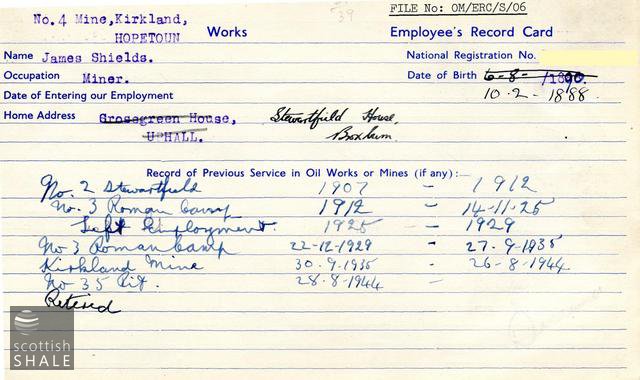 FILE No: OM/ERC/S/06
No. 4 Mine, Kirkland, 39
HOPETOUN Works Employee's Record Card
Name James Shields. National Registration No.
Occupation Miner. Date of Birth 6-8- /1890.
Date of Entering our Employment 10.2-1888.
Home Address Grossgreen House, Stewartfield House,
UPHALL. Broxburn.
Record of Previous Service in Oil Works or Mines (if any):—
No. 2 Stewartfield 1907 - 1912
No. 3 Roman Camp 1912 - 14-11-25
Left Employment. 1925 - 1929
No 3 Roman Camp 22-12-1929 - 27.9-1935
Kirkland Mine 30.9.1935 - 26-8-1944
No 35 Pit. 28.8-1944 -
Retired
scottish
SHALE